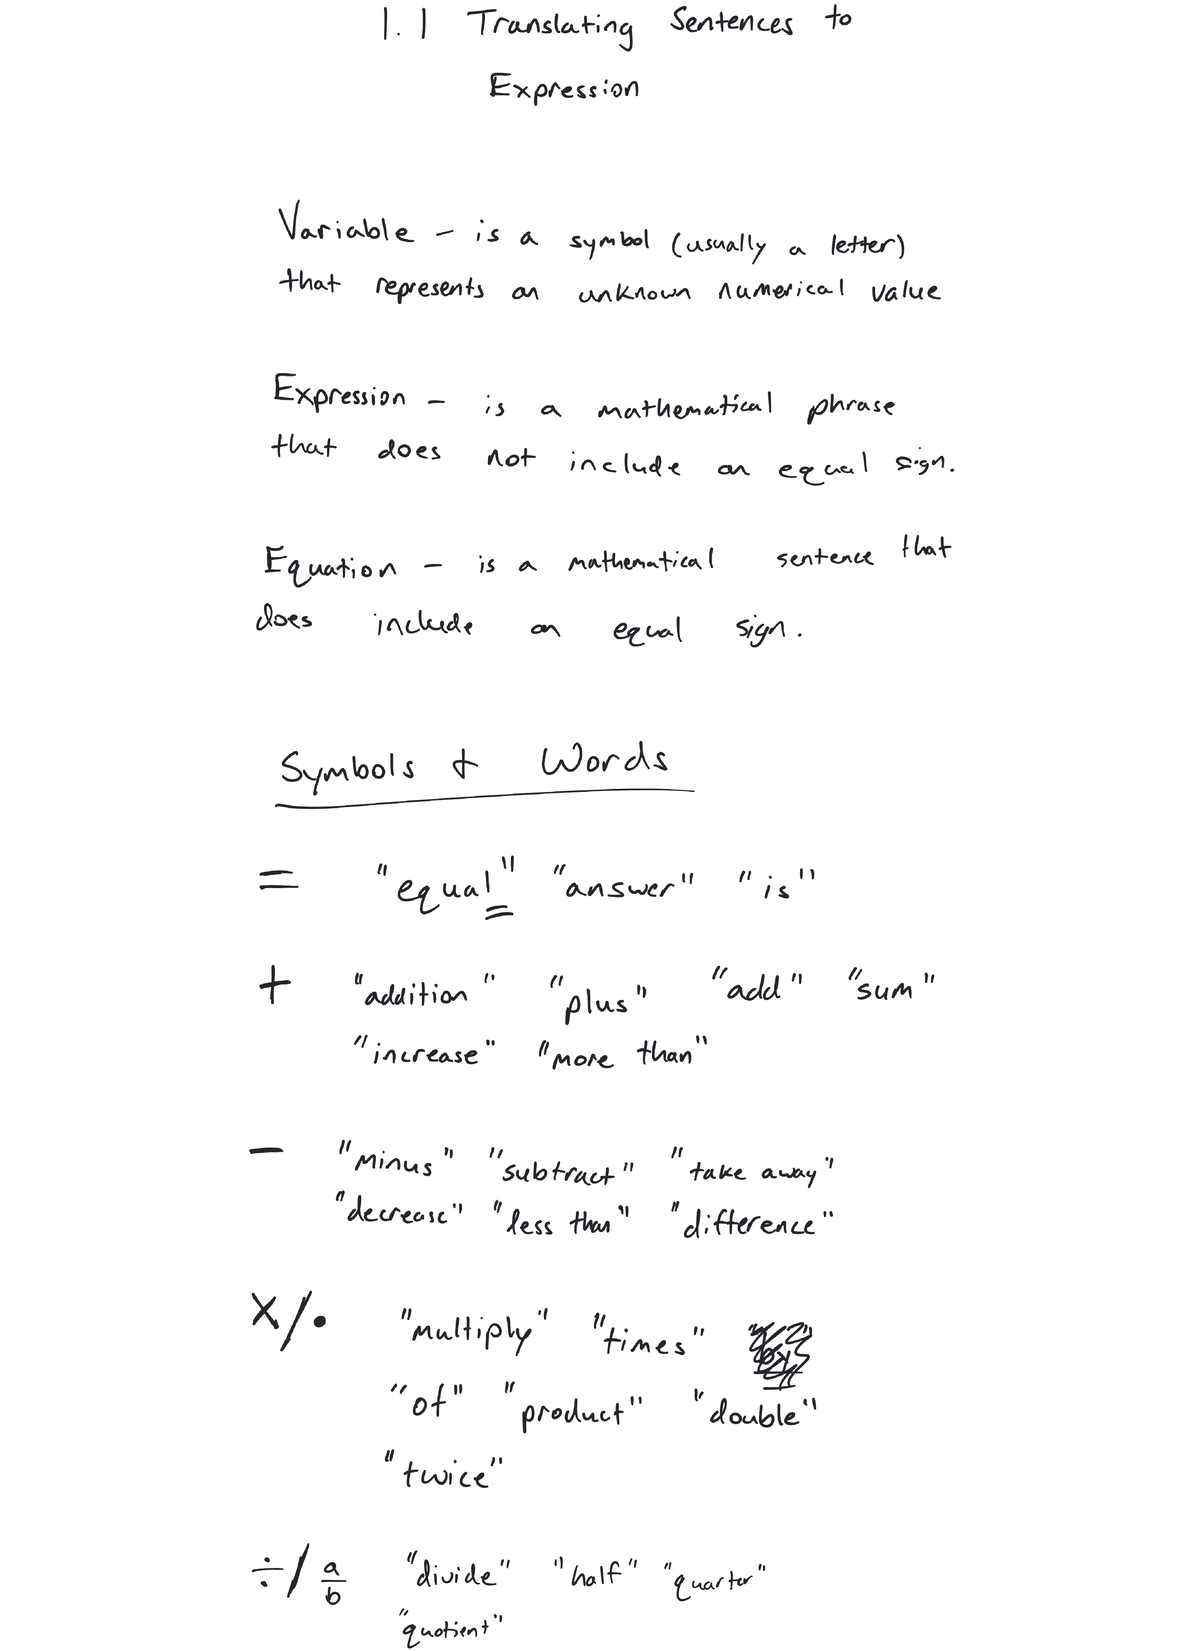 1.1 Translating Sentences to
Expression
Variable - is a symbol (usually a letter)
that represents an unknown numerical value
Expression - is a mathematical phrase
that does not include an equal sign.
Equation - is a mathematical sentence that
does include an equal sign.
Symbols + Words
= "equal" "answer" "is"
+ "addition" "plus" "add" "sum"
"increase" "more than"
- "minus" "subtract" "take away"
"decrease" "less than" "difference"
×/• "multiply" "times"
"of" "product" "double"
"twice"
÷/ a/b "divide" "half" "quarter"
"quotient"